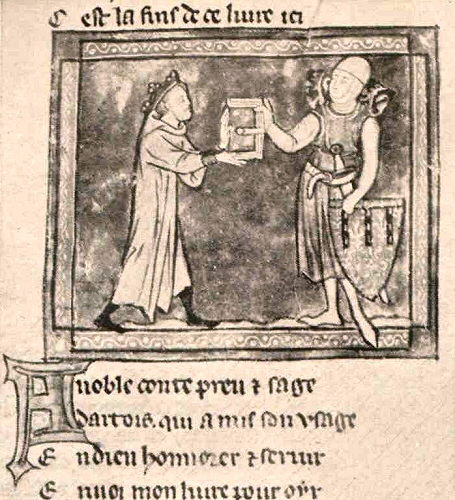 C est la fins de ce liure ici
A noble conte preu ⁊ sage
dartois. qui a mis son vsage
E n dieu honnorer ⁊ seruir
E nuoi mon liure pour oÿr